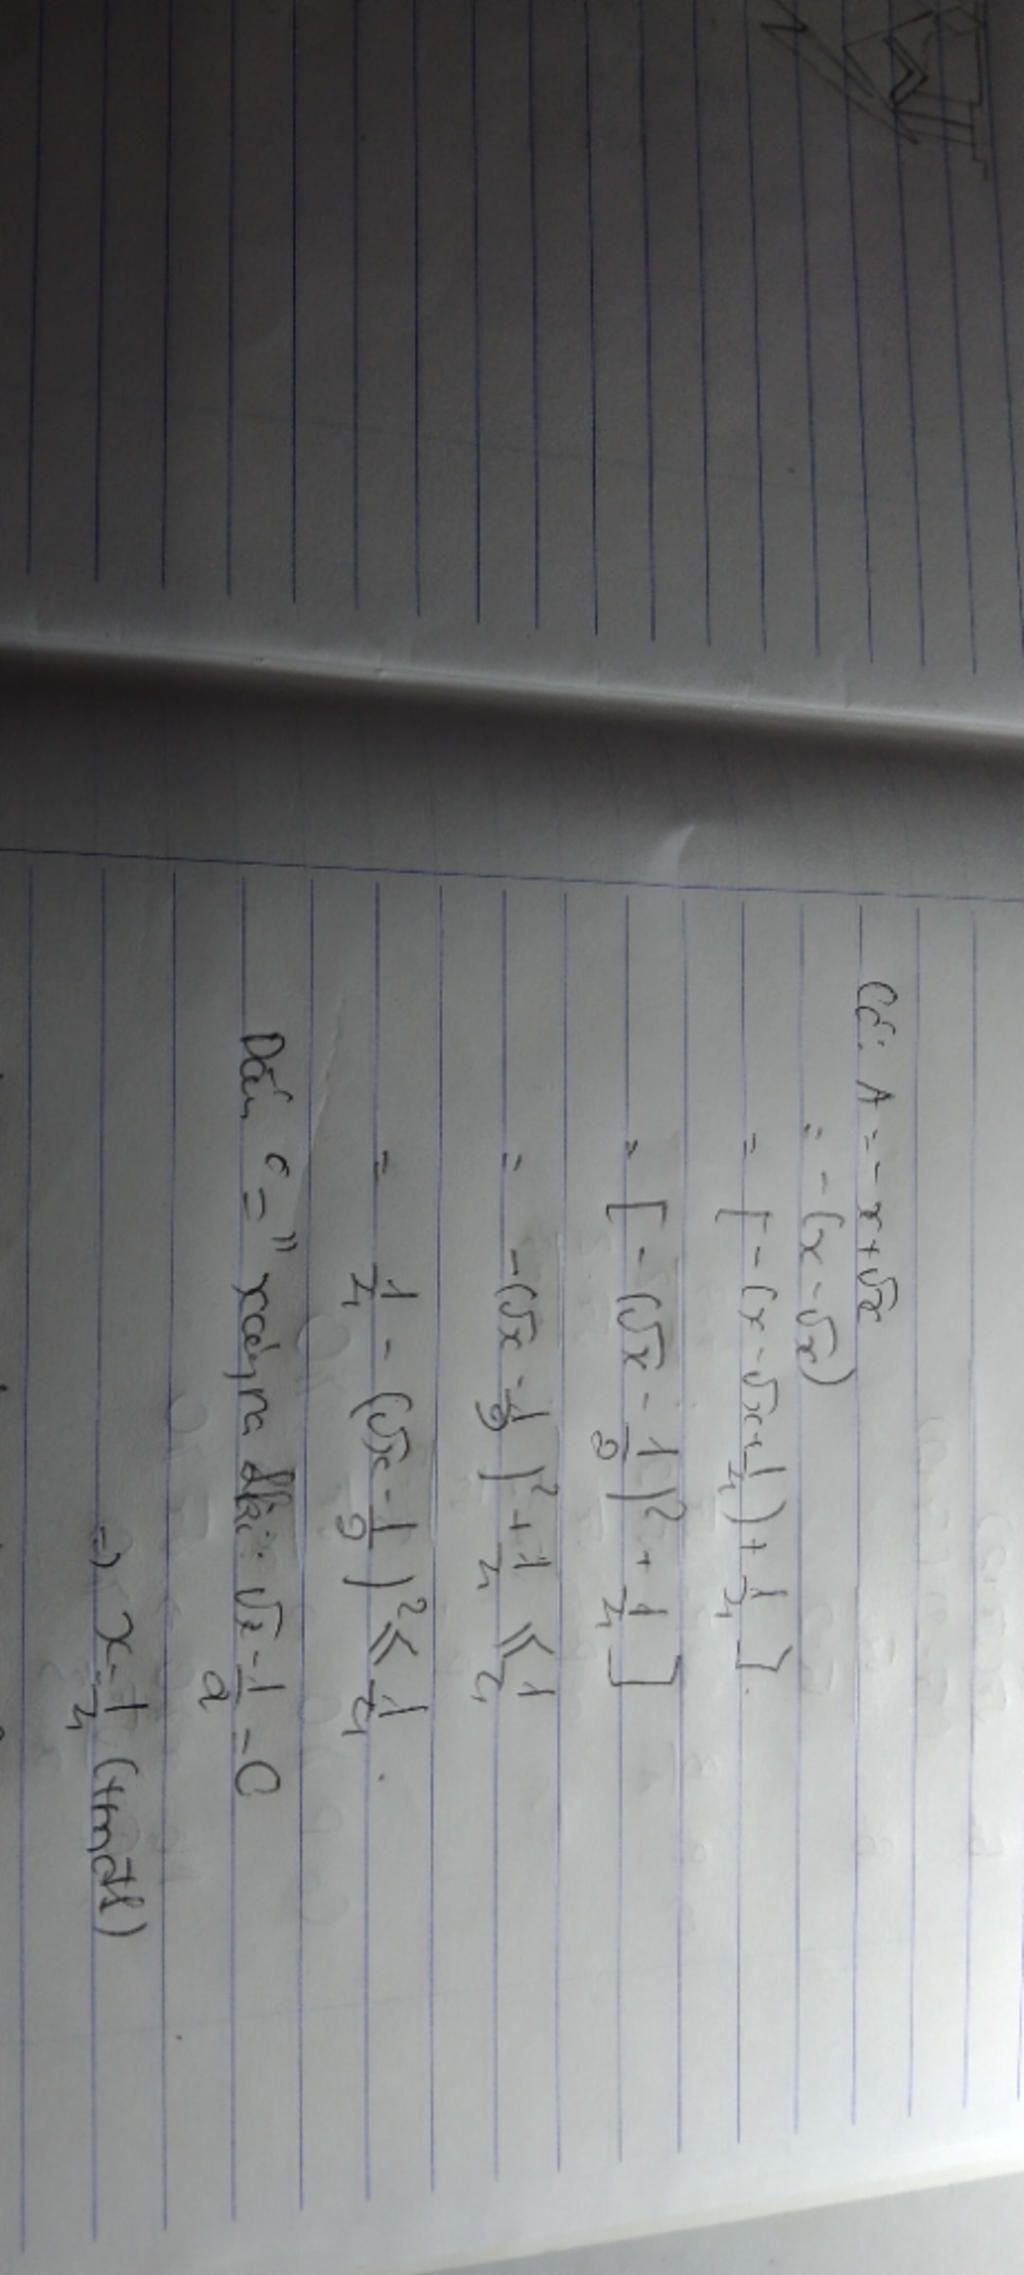 Có: A = - x + √x
= - (x - √x)
= [ - (x - √x + 1/4) + 1/4 ].
= [ - (√x - 1/2)² + 1/4 ]
= - (√x - 1/2)² + 1/4 ≤ 1/4
= 1/4 - (√x - 1/2)² ≤ 1/4.
Dấu "=" xảy ra đk: √x - 1/2 = 0
=> x = 1/4 (tmđk)